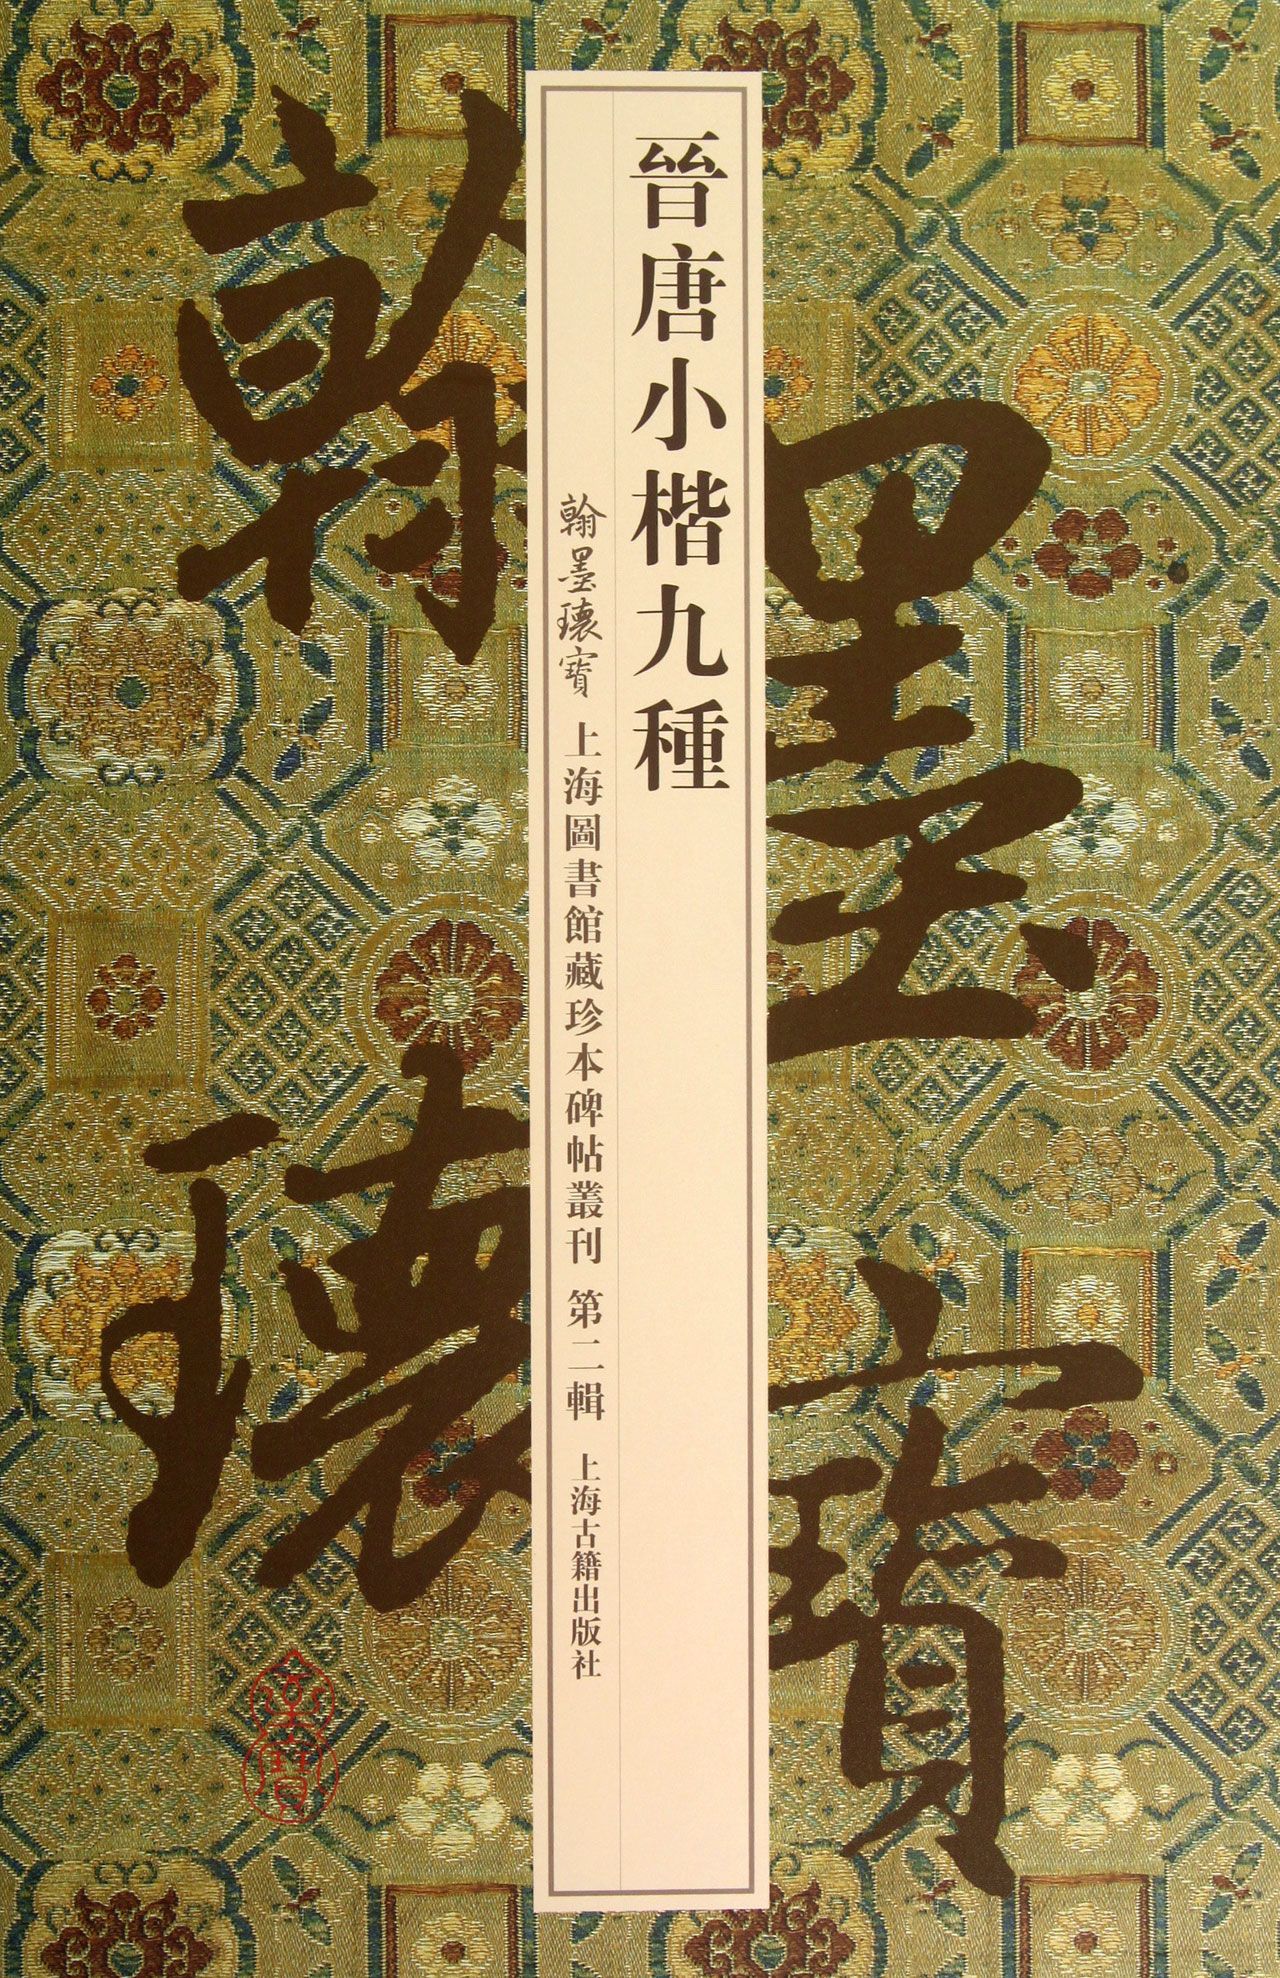 晉唐小楷九種
翰墨瓌寶 上海圖書館藏珍本碑帖叢刊 第二輯 上海古籍出版社
翰墨
瓌寶